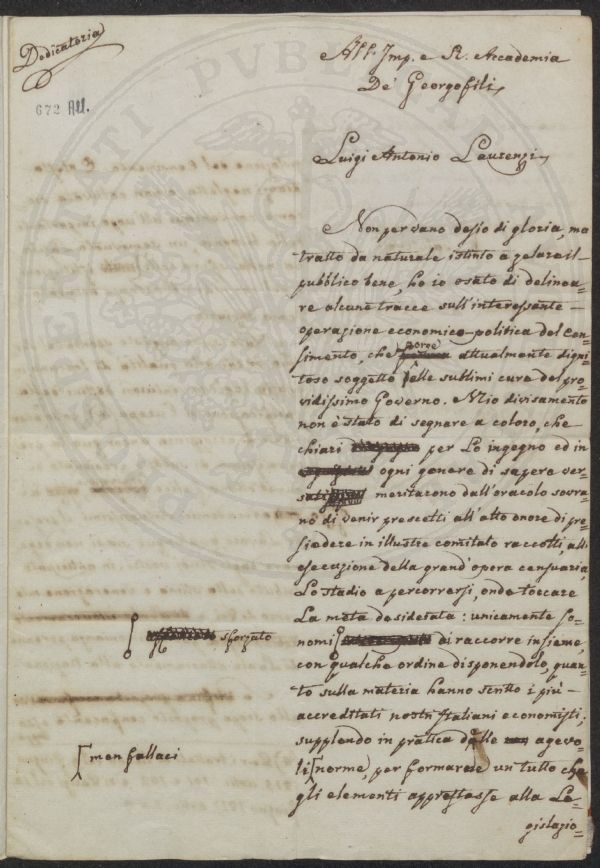 Dedicatoria
All' Imp. e R. Accademia
De' Georgofili
672 All.
Luigi Antonio
Non per vano desio di gloria, ma
tratto da naturale istinto a zelare il
pubblico bene, ho io osato di delinea=
re alcune tracce sull'interessante
operazione economico-politica del Cen=
simento, che porge attualmente digni=
toso soggetto alle sublimi cure del pro=
vidissimo Governo. Mio divisamento
non è stato di segnare a coloro, che
chiari per Lo ingegno ed in
ogni genere di sapere ver=
sati meritarono dall'oracolo sovra=
no di venir prescelti all'alto onore di pre=
siedere in illustre comitato raccolti, all'
esecuzione della grand'opera censuaria,
Lo stadio a percorrersi, onde toccare
La meta desiderata: unicamente so=
nomi di raccorre insieme,
sforzato
con qualche ordine disponendolo, quan=
to sulla materia hanno scritto i più
accreditati nostri Italiani economisti;
supplendo in pratica dalle agevo=
men fallaci
li norme, per formare un tutto che
gli elementi apprestasse alla Le=
gislazio=